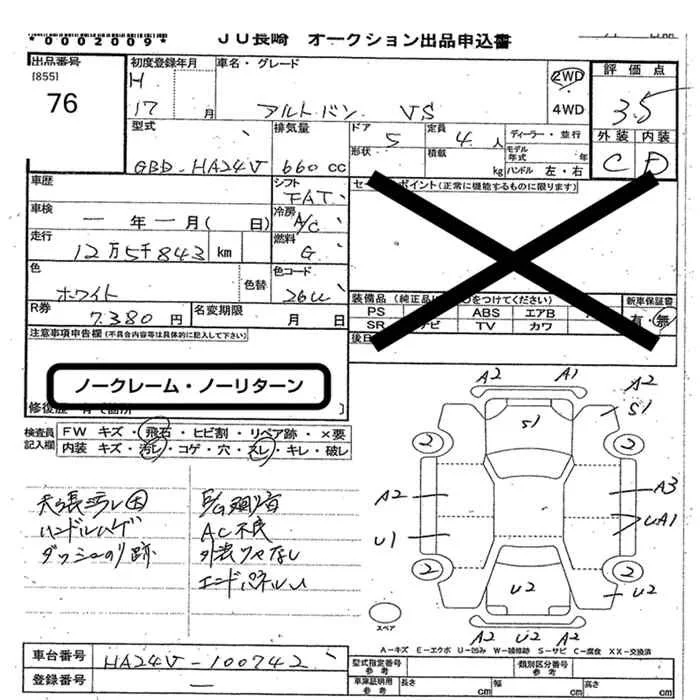 *0002009* JU長崎 オークション出品申込書
出品番号 初度登録年月 車名・グレード 2WD 評価点
[855] H
76 17 月 アルトバン VS 4WD 3.5
型式 排気量 ドア 5 定員 4 人 ディーラー・並行 外装 内装
形状 積載 kg モデル年式 年
GBD-HA24V 660 CC ハンドル 左・右 C D
車歴 シフト セ ポイント(正常に機能するものに限ります)
FAT
車検 一 年 一 月( 日) 冷房 A/C
走行 12万5千843 km 燃料 G
色 ホワイト 色替 色コード 26U
装備品(純正品に をつけてください) 新車保証書
R券 7.380 円 名変期限 月 日 PS ABS エアB 有・無
SR ナビ TV カワ
注意事項申告欄(不具合内容等は具体的に記入して下さい) 後日
ノークレーム・ノーリターン
修復歴 有 箇所 ]
検査員 FW キズ・飛石・ヒビ割・リペア跡・×要
記入欄 内装 キズ・汚レ・コゲ・穴・スレ・キレ・破レ
A2 A1 A2
S1 S1
2 2
天張汚レ大
ハンドルハゲ AC不良
ダッシュのり跡
エンドパネルU
A2 A3
U1 UA1
2 2
U2 U2
スペア
A2 U2 A2
A-キズ E-エクボ U-凹み W-補修跡 S-サビ C-腐食 XX-交換済
車台番号 HA24V-100742 型式指定番号 参考 類別区分番号 参考
登録番号 一 車庫証明用 参考 長さ cm 幅 cm 高さ cm